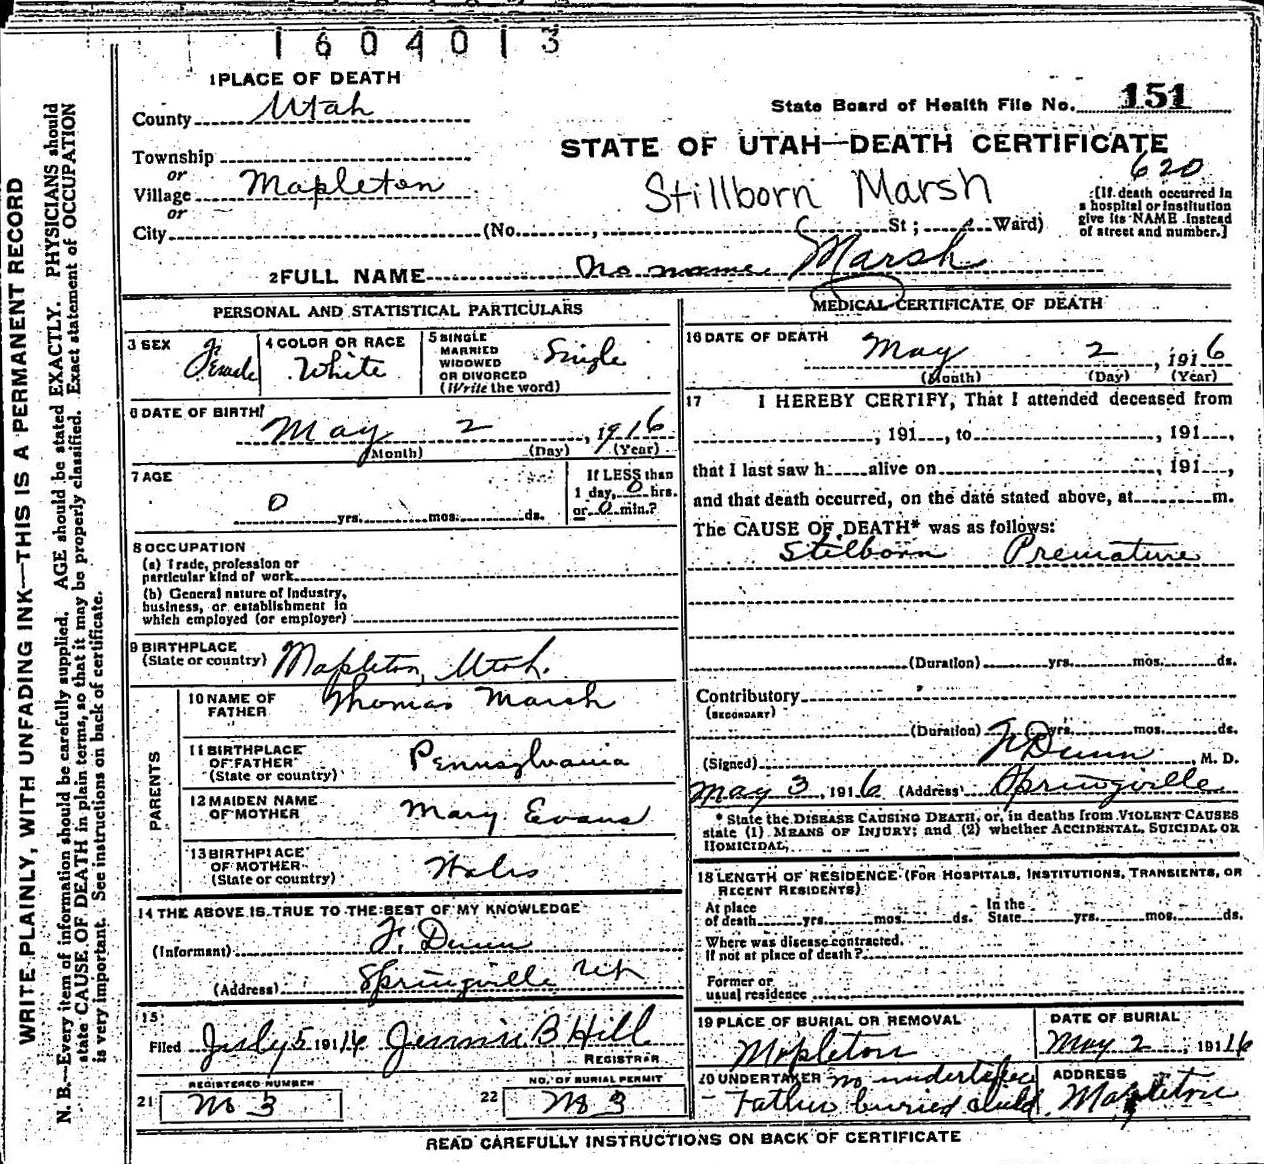 1604013
1 PLACE OF DEATH
County Utah
State Board of Health File No. 151
Township
or
Village Mapleton
or
City (No. , St ; Ward)
STATE OF UTAH—DEATH CERTIFICATE
620
Stillborn Marsh
[If death occurred in
a hospital or institution
give its NAME instead
of street and number.]
2 FULL NAME No name Marsh
PERSONAL AND STATISTICAL PARTICULARS
3 SEX Female
4 COLOR OR RACE White
5 SINGLE
MARRIED
WIDOWED
OR DIVORCED
(Write the word)
Single
6 DATE OF BIRTH
May 2, 1916
(Month) (Day) (Year)
7 AGE
0 yrs. mos. ds.
If LESS than
1 day, 0 hrs.
or 0 min.?
8 OCCUPATION
(a) Trade, profession or
particular kind of work
(b) General nature of industry,
business, or establishment in
which employed (or employer)
9 BIRTHPLACE
(State or country) Mapleton, Utah.
PARENTS
10 NAME OF
FATHER Thomas Marsh
11 BIRTHPLACE
OF FATHER
(State or country) Pennsylvania
12 MAIDEN NAME
OF MOTHER Mary Evans
13 BIRTHPLACE
OF MOTHER
(State or country) Wales
14 THE ABOVE IS TRUE TO THE BEST OF MY KNOWLEDGE
(Informant) F. Dunn
(Address) Springville Utah
15
Filed July 5 1916 Jennie B Hill
REGISTRAR
REGISTERED NUMBER
21 No 3
NO. OF BURIAL PERMIT
22 No 3
MEDICAL CERTIFICATE OF DEATH
16 DATE OF DEATH
May 2, 1916
(Month) (Day) (Year)
17 I HEREBY CERTIFY, That I attended deceased from
, 191 , to , 191 ,
that I last saw h alive on , 191 ,
and that death occurred, on the date stated above, at m.
The CAUSE OF DEATH* was as follows:
Stilborn Premature
(Duration) yrs. mos. ds.
Contributory
(SECONDARY)
(Duration) yrs. mos. ds.
(Signed) F Dunn, M. D.
May 3, 1916 (Address) Springville
* State the DISEASE CAUSING DEATH, or, in deaths from VIOLENT CAUSES
state (1) MEANS OF INJURY; and (2) whether ACCIDENTAL, SUICIDAL OR
HOMICIDAL,
18 LENGTH OF RESIDENCE (FOR HOSPITALS, INSTITUTIONS, TRANSIENTS, OR
RECENT RESIDENTS)
At place
of death yrs. mos. ds.
In the
State yrs. mos. ds.
Where was disease contracted.
If not at place of death?
Former or
usual residence
19 PLACE OF BURIAL OR REMOVAL
Mapleton
DATE OF BURIAL
May 2, 1916
20 UNDERTAKER no undertaker
Father buried child.
ADDRESS
Mapleton
READ CAREFULLY INSTRUCTIONS ON BACK OF CERTIFICATE
WRITE PLAINLY, WITH UNFADING INK—THIS IS A PERMANENT RECORD
N. B.—Every item of information should be carefully supplied. AGE should be stated EXACTLY. PHYSICIANS should
state CAUSE OF DEATH in plain terms, so that it may be properly classified. Exact statement of OCCUPATION
is very important. See instructions on back of certificate.